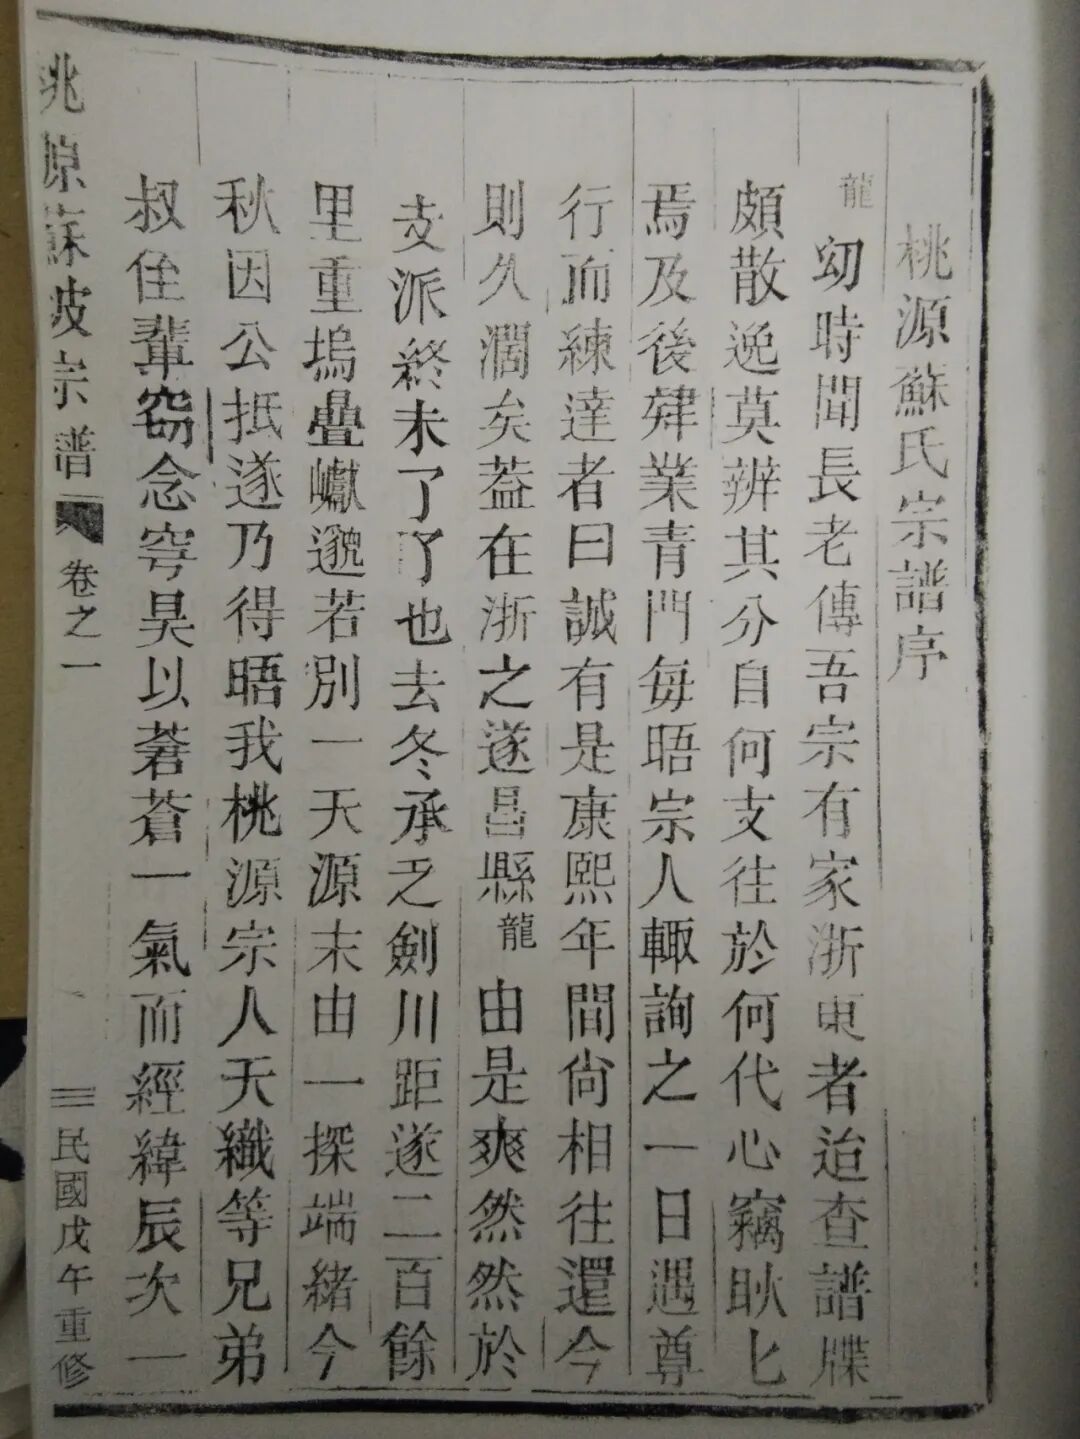 桃源蘇氏宗譜序
龍㓜時聞長老傳吾宗有家浙東者迨查譜牒
頗散逸莫辨其分自何支往於何代心竊耿匕
焉及後肄業青門每晤宗人輙詢之一日遇尊
行而練達者曰誠有是康熙年間尙相往還今
則久濶矣葢在浙之遂昌縣龍由是爽然然於
支派終未了了也去冬承乏劍川距遂二百餘
里重塢疊巘邈若別一天源末由一探端緒今
秋因公抵遂乃得晤我桃源宗人天織等兄弟
叔侄輩窃念穹昊以蒼蒼一氣而經緯辰次一
桃源蘇坡宗譜 卷之一 三 民國戊午重修